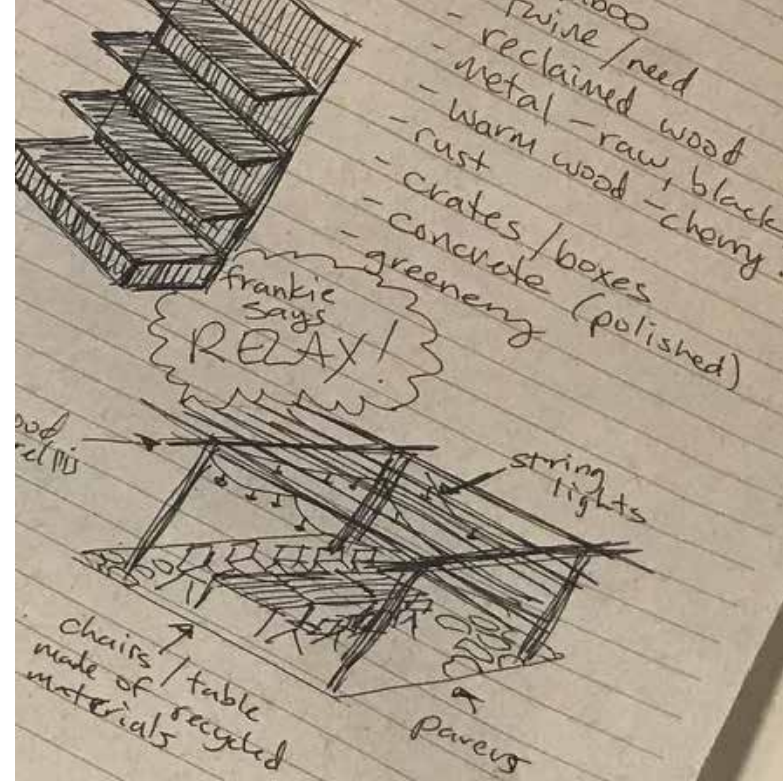 twine/need
- reclaimed wood
- metal - raw, black
- warm wood - cherry
- rust
- crates/boxes
- concrete (polished)
- greenery
frankie
says
RELAX!
string
lights
chairs/table
made of recycled
materials
pavers